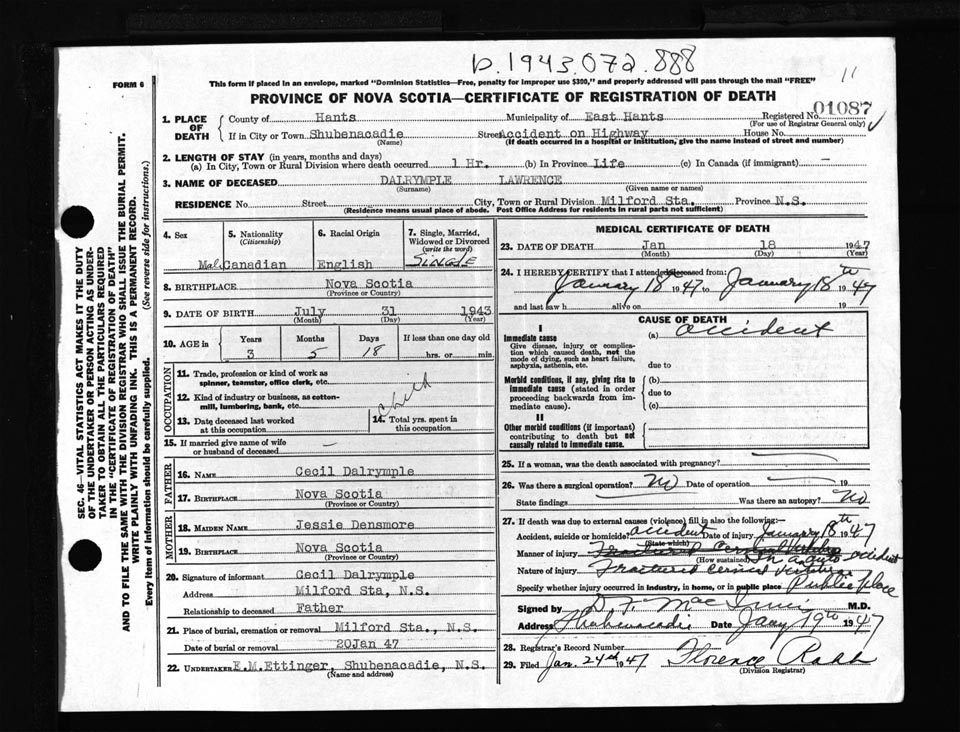 b.1943.072.888
11
FORM 6
This form if placed in an envelope, marked "Dominion Statistics—Free, penalty for improper use $300," and properly addressed will pass through the mail "FREE"
PROVINCE OF NOVA SCOTIA—CERTIFICATE OF REGISTRATION OF DEATH
1. PLACE OF DEATH
County of Hants Municipality of East Hants Registered No. 01087
(For use of Registrar General only)
If in City or Town Shubenacadie Street Accident on Highway House No.
(Name) (If death occurred in a hospital or institution, give the name instead of street and number)
2. LENGTH OF STAY (in years, months and days)
(a) In City, Town or Rural Division where death occurred 1 Hr. (b) In Province Life (c) In Canada (if immigrant) —
3. NAME OF DECEASED DALRYMPLE LAWRENCE
(Surname) (Given name or names)
RESIDENCE No. Street City, Town or Rural Division Milford Sta. Province N.S.
(Residence means usual place of abode. Post Office Address for residents in rural parts not sufficient)
4. Sex
Mal.
5. Nationality
(Citizenship)
Canadian
6. Racial Origin
English
7. Single, Married, Widowed or Divorced
(write the word)
SINGLE
8. BIRTHPLACE Nova Scotia
(Province or Country)
9. DATE OF BIRTH July 31 1943
(Month) (Day) (Year)
10. AGE in
Years Months Days If less than one day old
3 5 18 hrs. or min.
OCCUPATION
11. Trade, profession or kind of work as
spinner, teamster, office clerk, etc.
12. Kind of industry or business, as cotton-
mill, lumbering, bank, etc.
child
13. Date deceased last worked
at this occupation
14. Total yrs. spent in
this occupation
15. If married give name of wife
or husband of deceased —
FATHER
16. NAME Cecil Dalrymple
17. BIRTHPLACE Nova Scotia
(Province or Country)
MOTHER
18. MAIDEN NAME Jessie Densmore
19. BIRTHPLACE Nova Scotia
(Province or Country)
20. Signature of informant Cecil Dalrymple
Address Milford Sta, N.S.
Relationship to deceased Father
21. Place of burial, cremation or removal Milford Sta., N.S.
Date of burial or removal 20Jan 47
22. UNDERTAKER E.M.Ettinger, Shubenacadie, N.S.
(Name and address)
MEDICAL CERTIFICATE OF DEATH
23. DATE OF DEATH Jan 18 1947
(Month) (Day) (Year)
24. I HEREBY CERTIFY that I attended deceased from:
January 18 1947 to January 18th 1947
and last saw h alive on 19
CAUSE OF DEATH
I
Immediate cause
Give disease, injury or complica-
tion which caused death, not the
mode of dying, such as heart failure,
asphyxia, asthenia, etc.
(a) accident
due to
Morbid conditions, if any, giving rise to
immediate cause (stated in order
proceeding backwards from im-
mediate cause).
(b)
due to
(c)
II
Other morbid conditions (if important)
contributing to death but not
causally related to immediate cause.
25. If a woman, was the death associated with pregnancy?
26. Was there a surgical operation? No Date of operation 19
State findings Was there an autopsy? No
27. If death was due to external causes (violence) fill in also the following:—
Accident, suicide or homicide? accident Date of injury January 18th 1947
(State which)
Manner of injury Fractured In a auto accident
(How sustained)
Nature of injury Fractured
Specify whether injury occurred in industry, in home, or in public place Public place
Signed by D F M.D.
Address Shubenacadie Date Jany 19th 1947
28. Registrar's Record Number
29. Filed Jan. 24th 1947 Florence
(Division Registrar)
SEC. 46—VITAL STATISTICS ACT MAKES IT THE DUTY
OF THE UNDERTAKER OR PERSON ACTING AS UNDER-
TAKER TO OBTAIN ALL THE PARTICULARS REQUIRED
IN THE "CERTIFICATE OF REGISTRATION OF DEATH"
AND TO FILE THE SAME WITH THE DIVISION REGISTRAR WHO SHALL ISSUE THE BURIAL PERMIT.
WRITE PLAINLY WITH UNFADING INK. THIS IS A PERMANENT RECORD.
Every item of information should be carefully supplied. (See reverse side for instructions.)